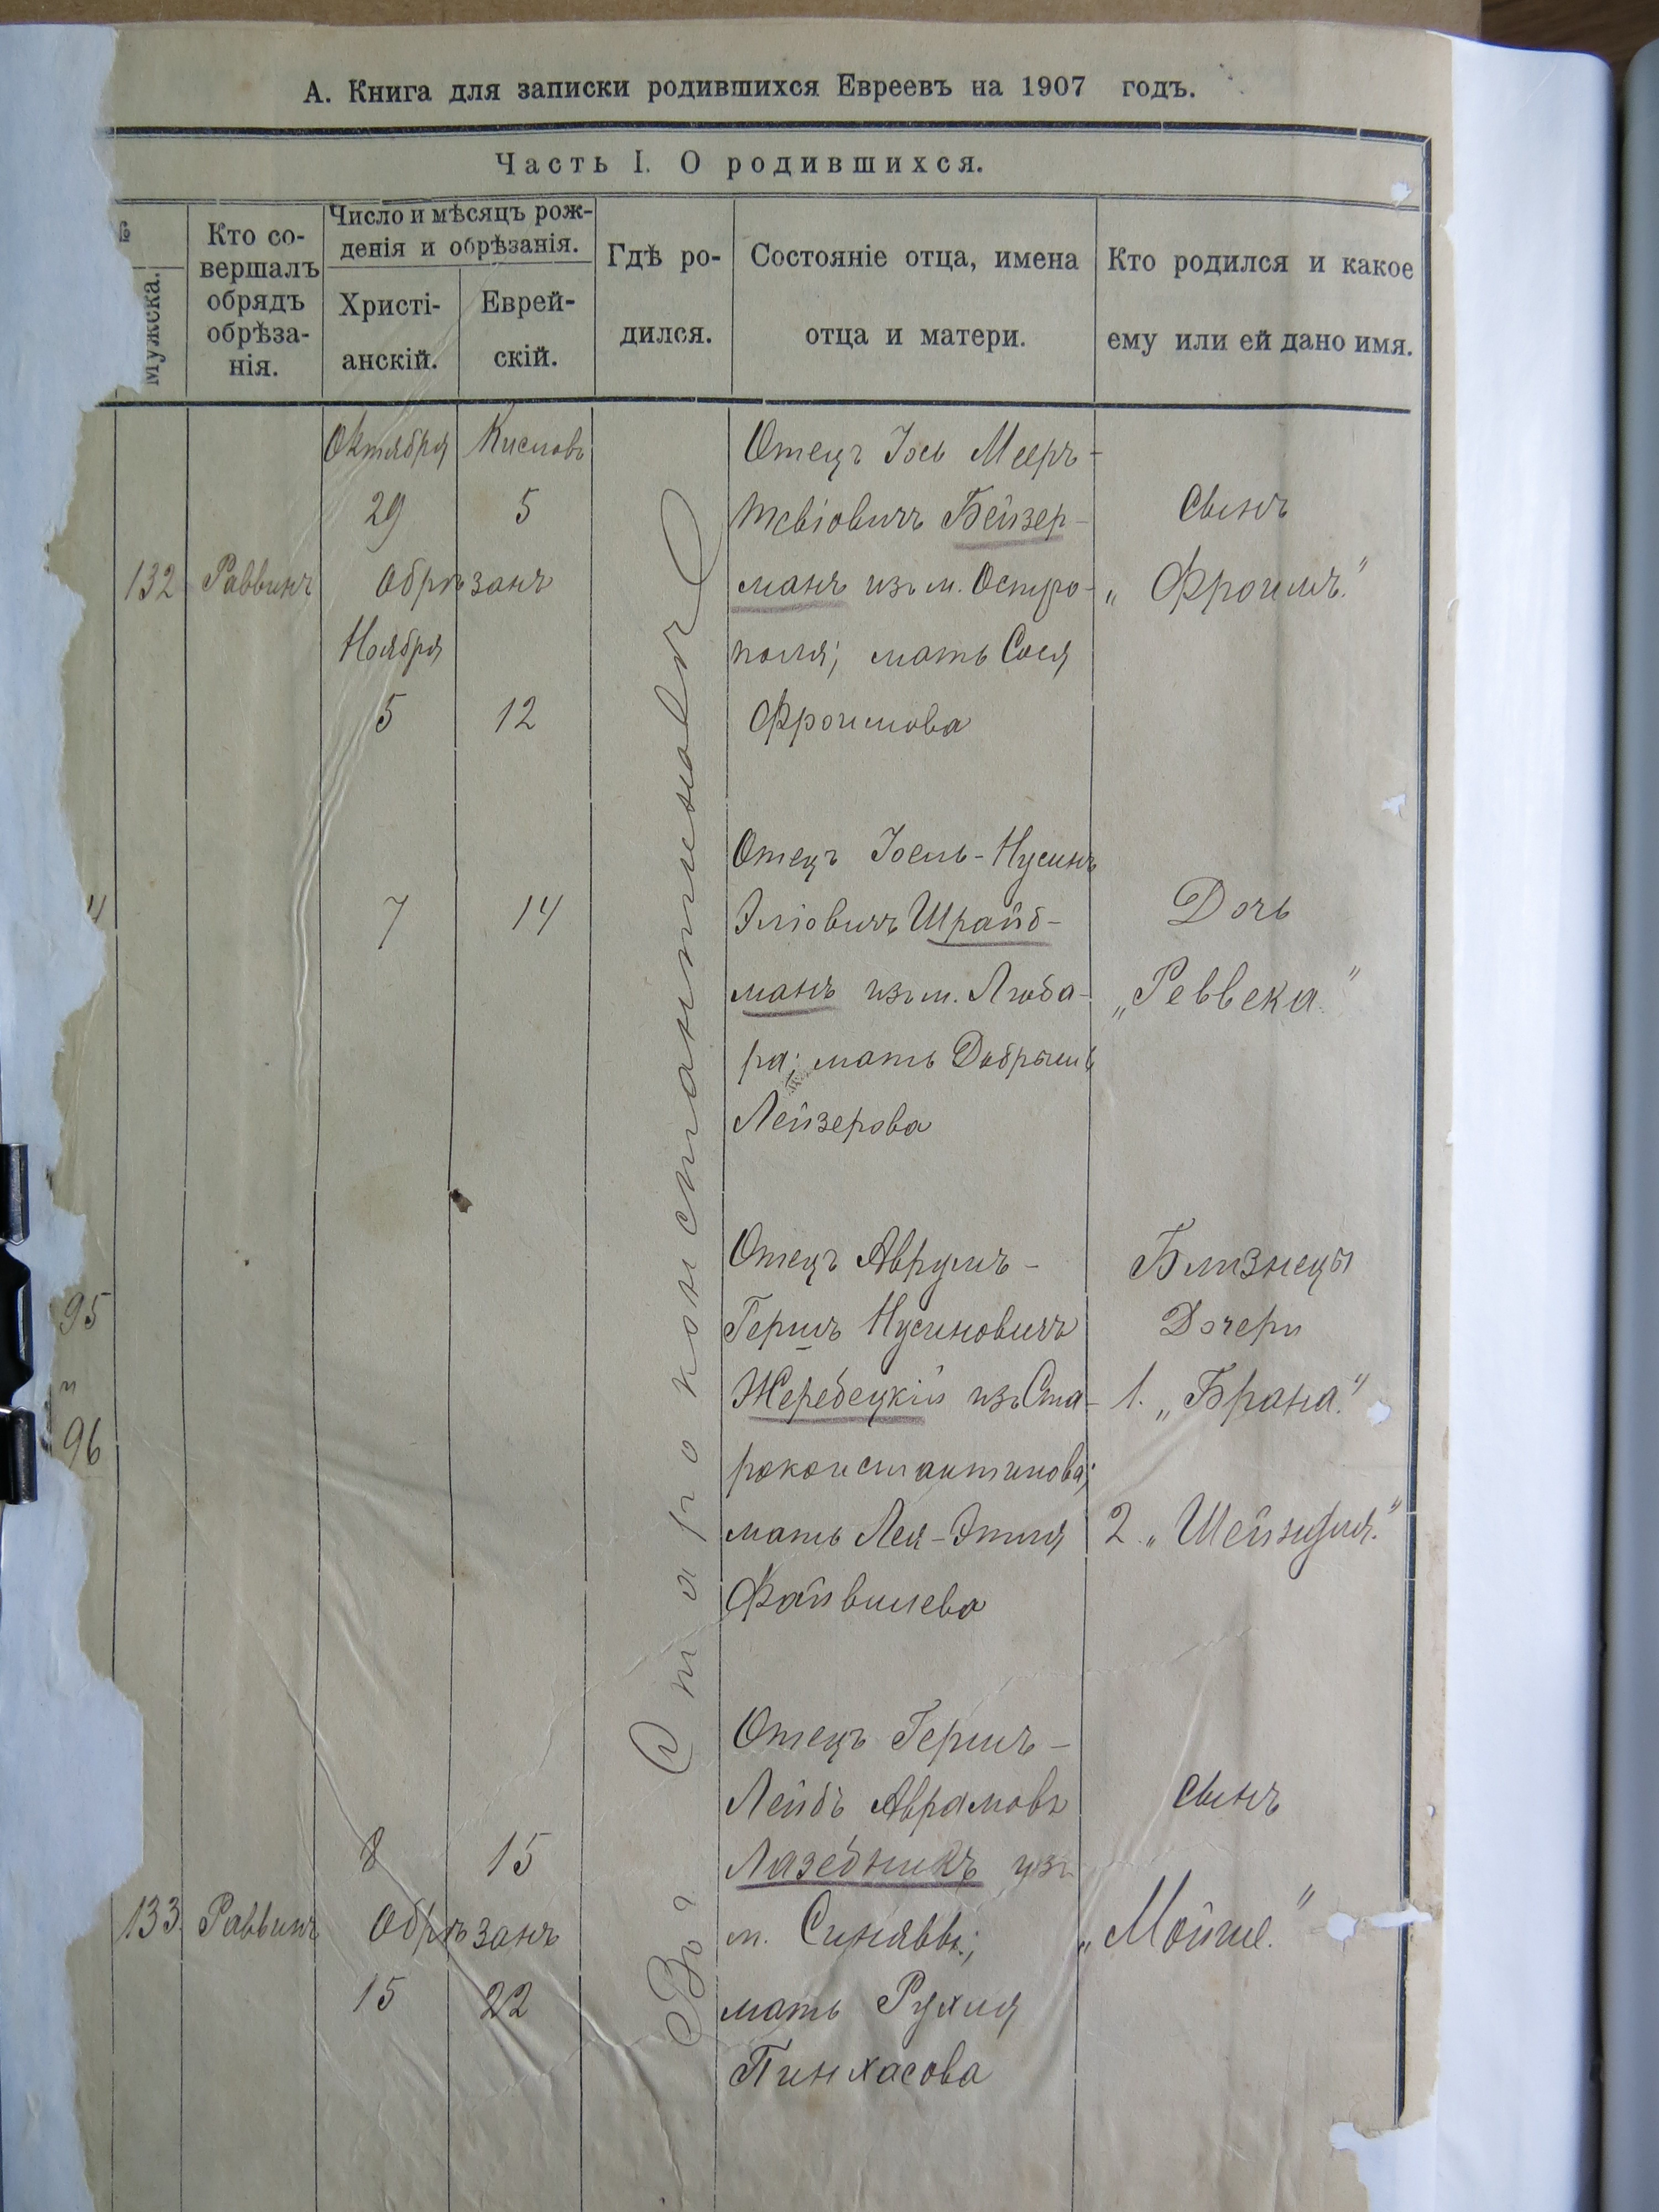 А. Книга для записки родившихся Евреевъ на 1907 годъ.
Часть I. О родившихся.
Мужска.
Кто со-
вершалъ
обрядъ
обрѣза-
нія.
Число и мѣсяцъ рож-
денія и обрѣзанія.
Христі-
анскій.
Еврей-
скій.
Гдѣ ро-
дился.
Состояніе отца, имена
отца и матери.
Кто родился и какое
ему или ей дано имя.
Въ Староконстантиновѣ
132
Раввинъ
Октября Кислевъ
29 5
Обрѣзанъ
Ноября
5 12
Отецъ Іось Мееръ-
Тевіовичъ Бейзер-
манъ изъ м. Остро-
поля; мать Сося
Фроимова
Сынъ
„Фроимъ."
7 14
Отецъ Іоель-Нусинъ
Эліовичъ Шрайб-
манъ изъ м. Люба-
ра; мать Добрышъ
Лейзерова
Дочь
„Реввека."
95
и
96
Отецъ Аврумъ-
Гершъ Нусиновичъ
Жеребецкій изъ Ста-
роконстантинова;
мать Лея-Этля
Файвишева
Близнецы
Дочери
1. „Брана."
2. „Шейндля."
133
Раввинъ
8 15
Обрѣзанъ
15 22
Отецъ Гершъ-
Лейбъ Аврамовъ
Лазебникъ изъ
м. Синявы;
мать Рухля
Пинхасова
Сынъ
„Мойше."